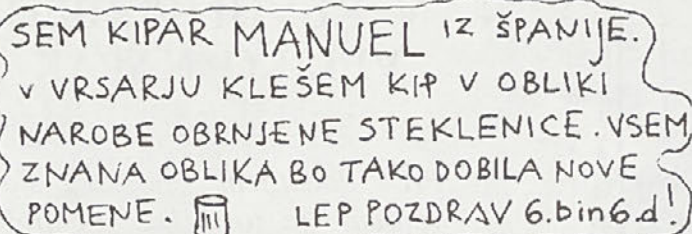 SEM KIPAR MANUEL IZ ŠPANIJE.
V VRSARJU KLEŠEM KIP V OBLIKI
NAROBE OBRNJENE STEKLENICE. VSEM
ZNANA OBLIKA BO TAKO DOBILA NOVE
POMENE. LEP POZDRAV 6.bin6.d!